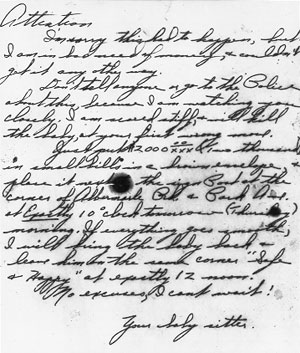 Attention.
I'm sorry this had to happen, but
I am in bad need of money, & couldn't
get it any other way.
Don't tell anyone or go to the Police
about this, because I am watching you
closely. I am scared stiff, & will kill
the baby, at your first wrong move.
Just put $2000 00/xxx (two thousand)
in small bills in a brown envelope, &
place it next to the sign Post at the
corner of Albemarle Rd. & Park Ave.
at Exactly 10 o'clock tomorrow (Thursday)
morning. If everything goes smooth,
I will bring the baby back &
leave him on the same corner "Safe
& Happy" at exactly 12 noon.
No excuses, I can't wait!
Your baby sitter.